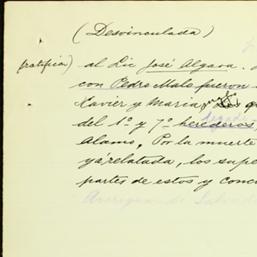 (Desvinculada)
ratifica) al Lic José Algara.
con Pedro Malo fueron
Xavier y María, Los
del 1º y 7º herederos,
Alamo. Por la muerte
ya relatada, los
partes de estos y